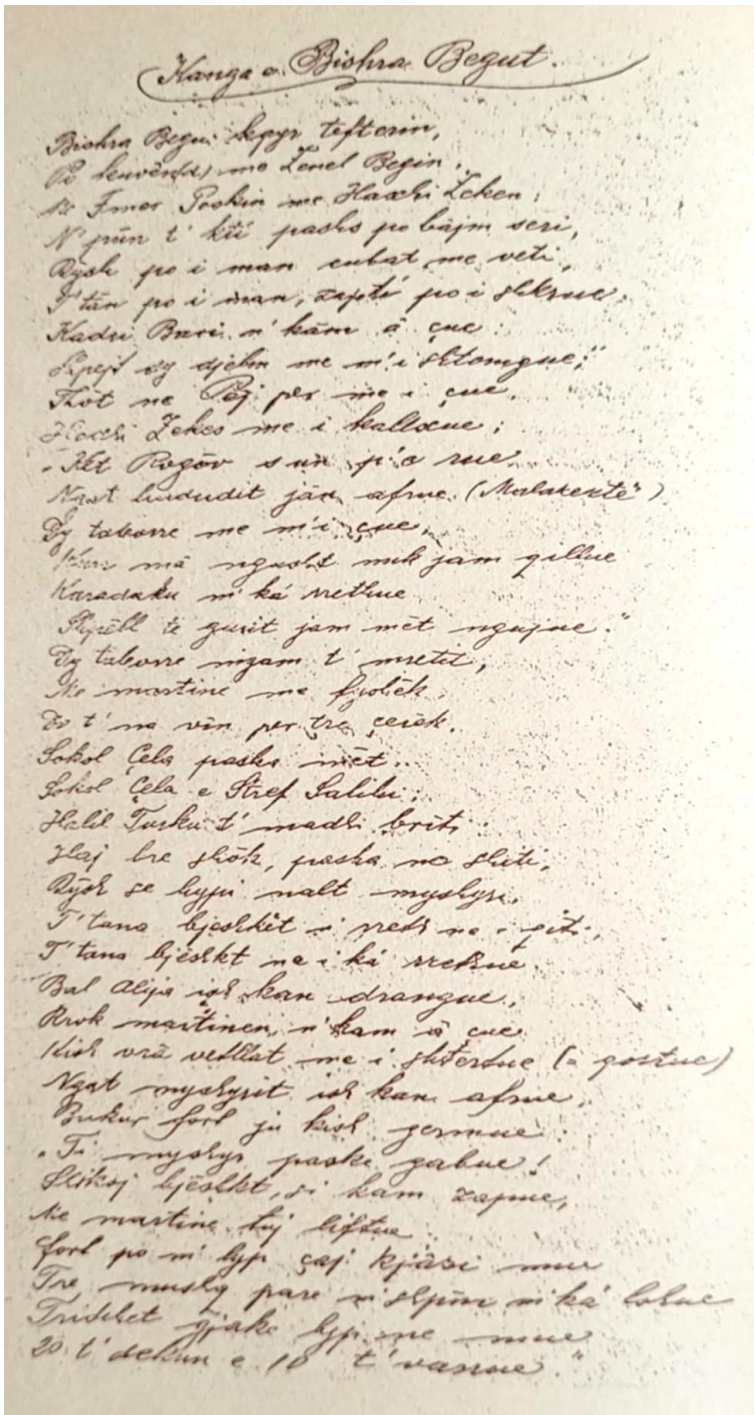 Kanga e Bishra Begut.
Bishra Begu kpyr tefterin,
Po kuvënd me Zenel Begin,
Me Imer Poskin me Haxhi Zeken;
N'pün t' ktí pasha po bájm seri,
Dysh po i man cubat me veti,
T'tân po i man, zaptí po i shkrue.
Kadri Bari n' kâm â çue:
Shpejt dy djelm me m'i shtomgue;"
Thot ne Pej per me i çue,
Haxhi Zekes me i kallxue;
"Ket Rogôv s un p'o rue,
Nast hududit ján afrue (Malaxeztë")
Dy taborre me m'i çue,
Kurr mâ ngusht nuk jam qillue
Karadaku m'ká rrethue
Shpëll të gurit jam mêt ngujue."
Dy taborre nizam t' mretit,
Me martine me fyshêk,
Do t' na vîn per tre çerek.
Sokol Çela paska mêt.
Sokol Çela e Stref Salihi;
Halil Turku t' madhi briti:
Haj bre shôk, pasha na shiti,
Dysh se hypi nalt myshyri,
T'tana bjeshkët i rreth na i qiti,
T'tana bjeshkt na i ká rrethue.
Bal Alija ish kan drangue,
Rrok martinen, n'kam â çue
Kish vrâ vetllat me i shterrue (=
Ngat myshyrit ish kan afrue,
Bukur fort ju kish germue:
"Ti myshyr paske gabue!
Shikoj bjeshkt, si kam zapue,
Me martine tuj liftue
Fort po m' hyp çaj kjâsi mue
Tre mushq pare n'shpín m'ká lshue
Tridhet gjake hyp me mue
20 t' dekun e 10 t' varrue."